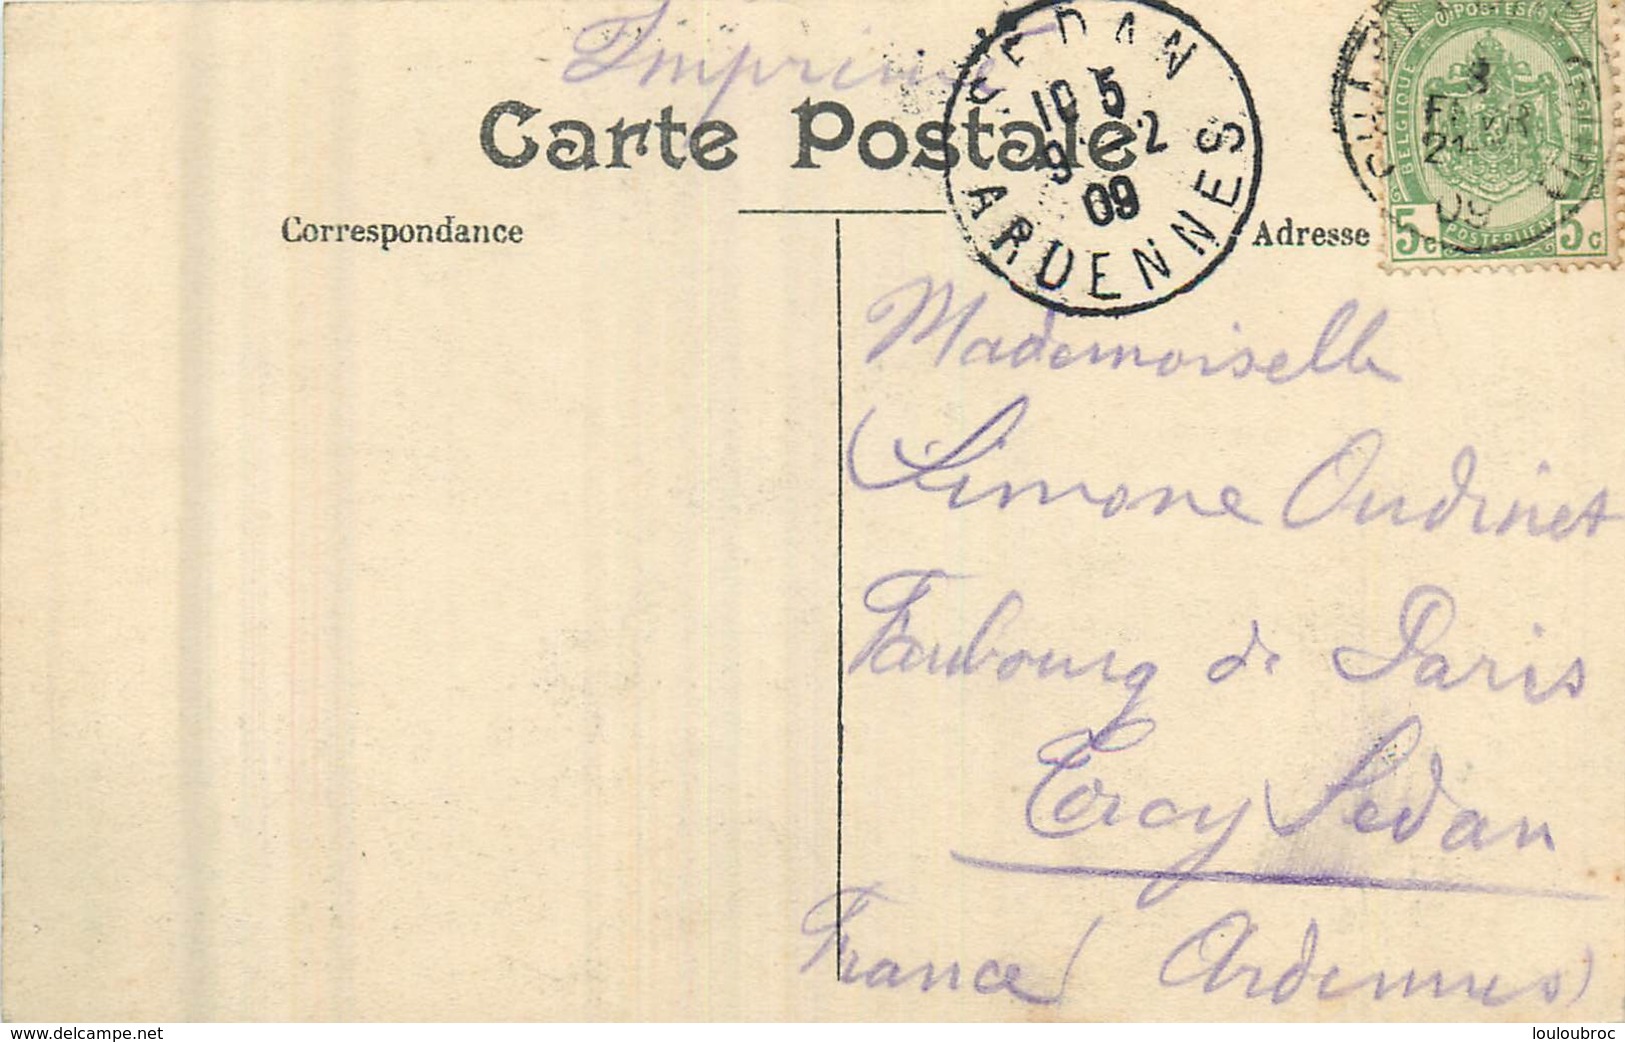 Imprimé
Carte Postale
Correspondance
Adresse
SEDAN
10 5
9 -2
09
ARDENNES
POSTES
BELGIQUE
3
FEVR
21-
09
5c 5c
Mademoiselle
Simone Oudinet
Faubourg de Paris
Torcy Sedan
France (Ardennes)
www.delcampe.net
louloubroc